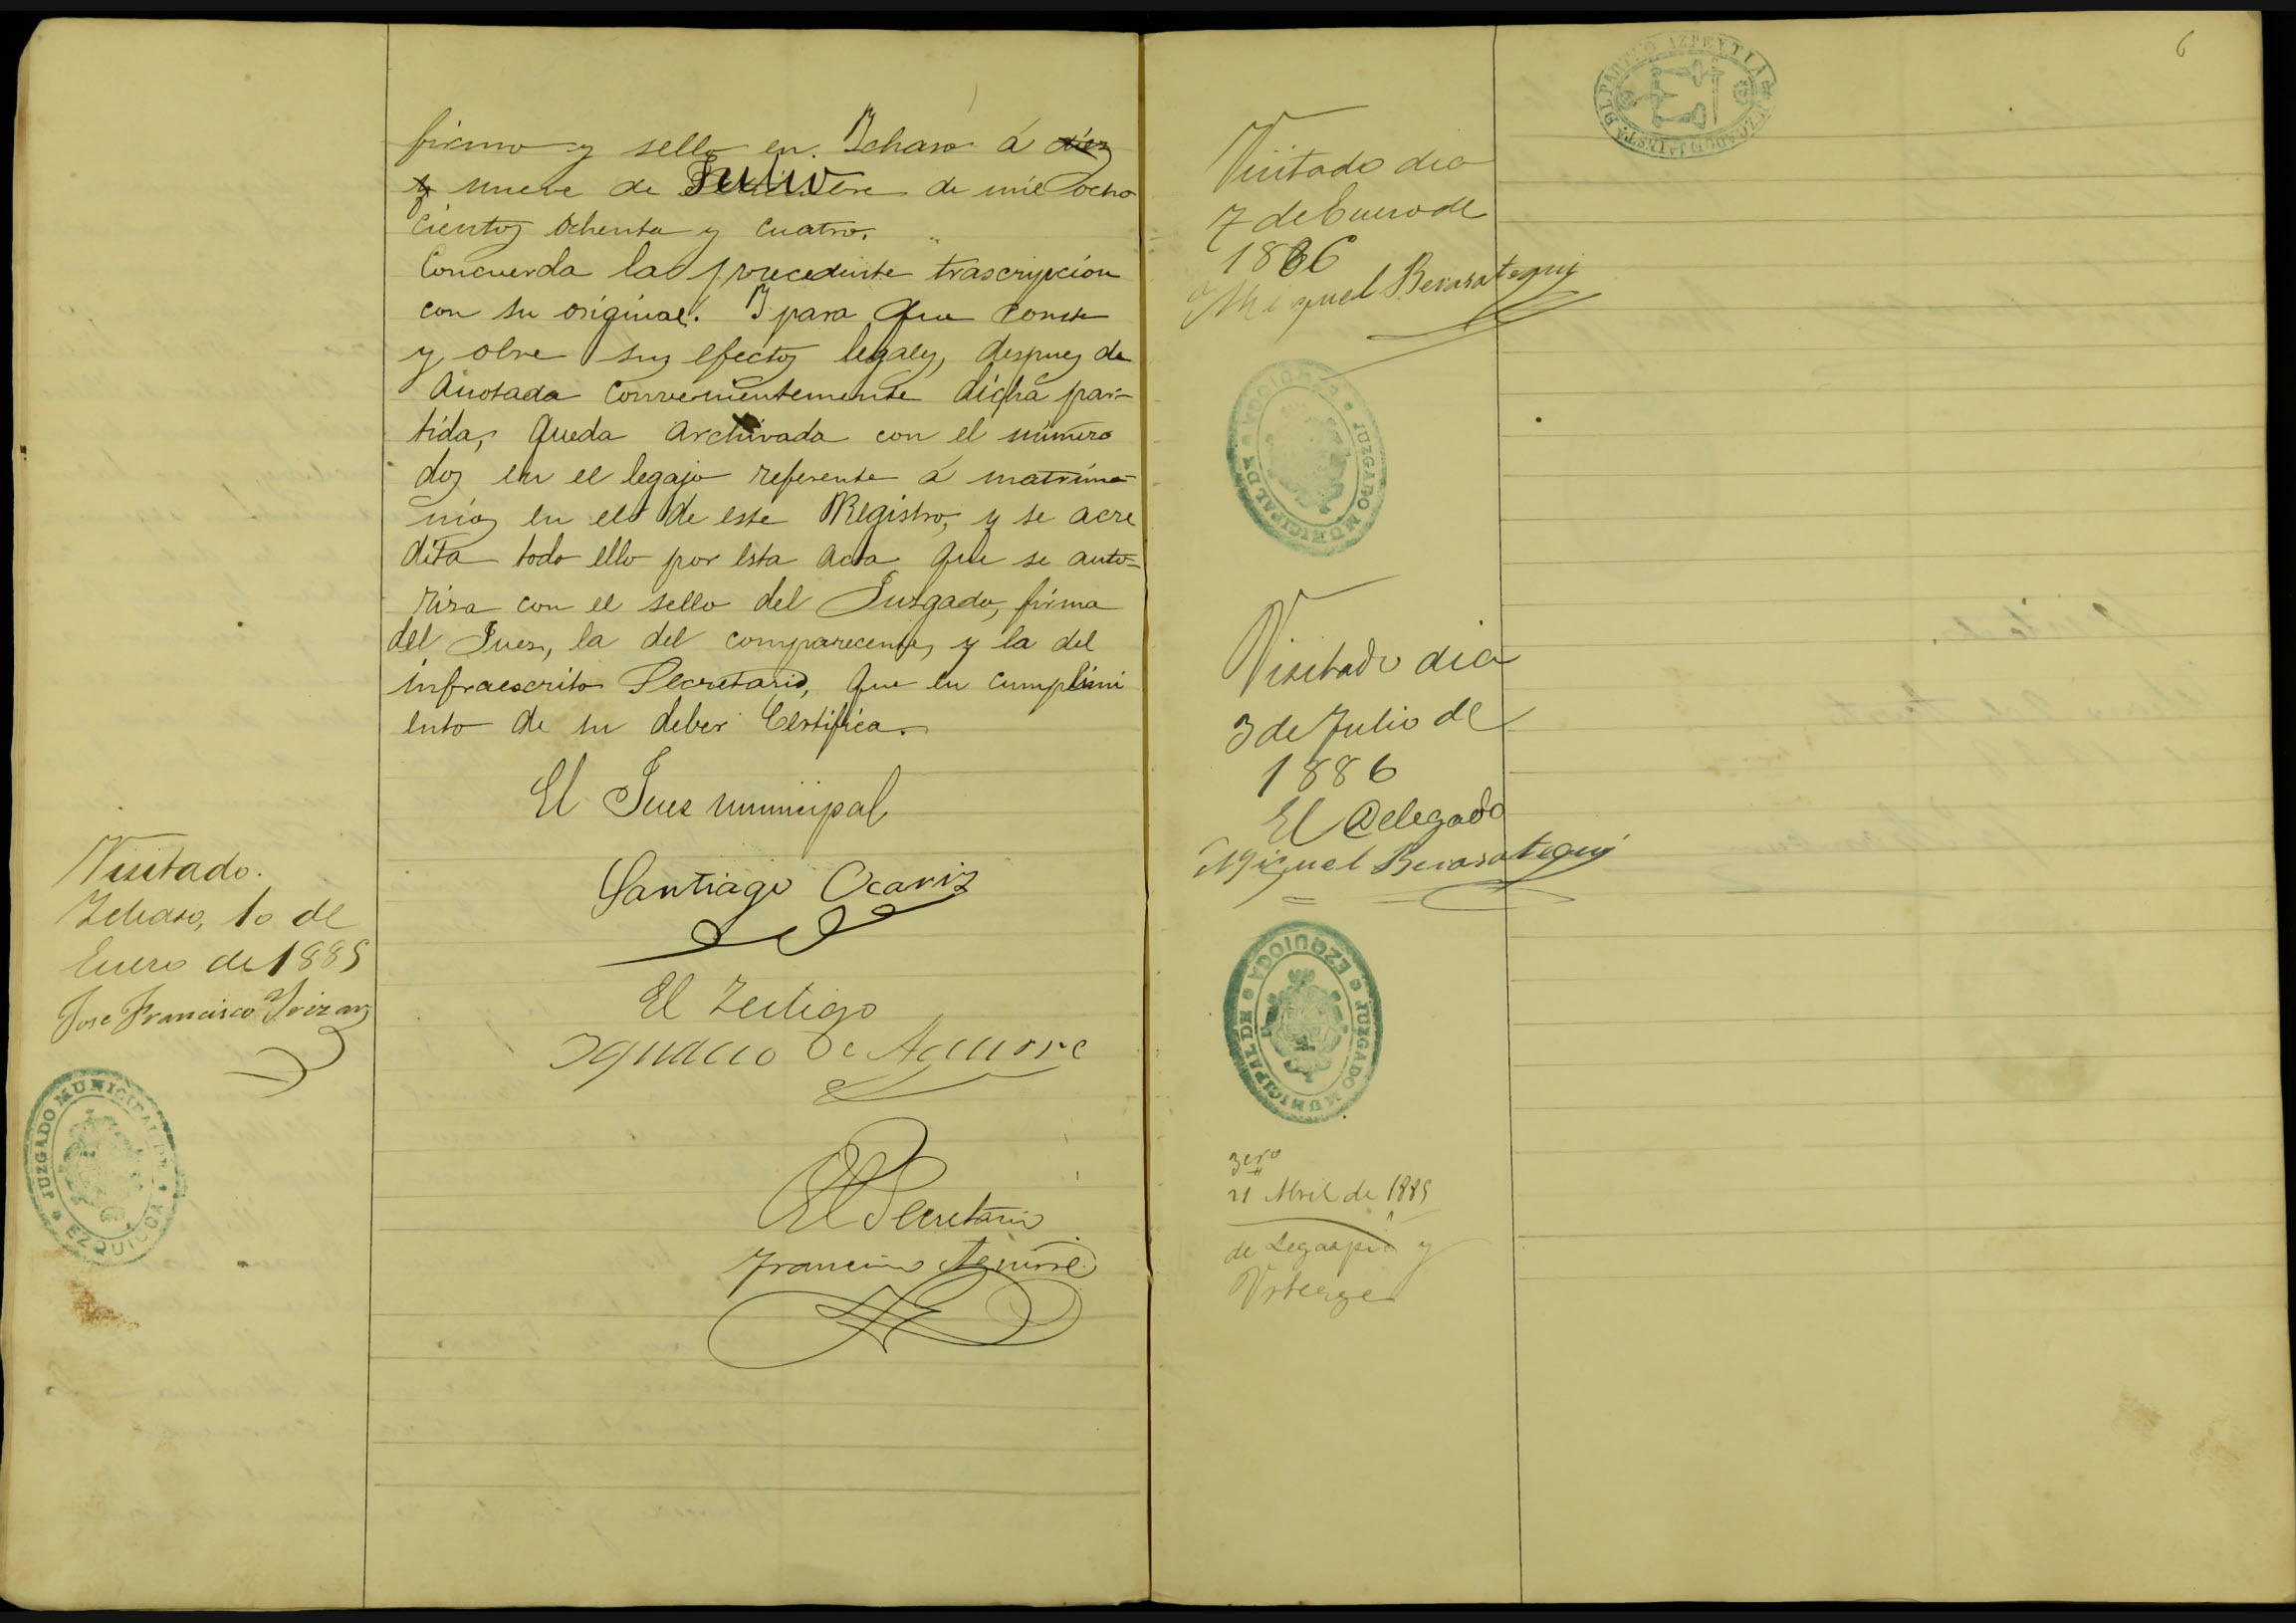 firmo y sello en Ichaso á diez
y nueve de Julio de mil ocho
cientos ochenta y cuatro.
Concuerda la precedente trascripcion
con su original. Y para que conste
y obre sus efectos legales, despues de
anotada convenientemente dicha par=
tida, queda archivada con el número
dos en el legajo referente á matrimo=
nios en el de este Registro, y se acre
dita todo ello por esta acta que se auto=
riza con el sello del Juzgado, firma
del Juez, la del compareciente, y la del
infraescrito Secretario, que en cumplimi
ento de su deber Certifica.
El Juez municipal
Santiago Ocariz
El Testigo
Ignacio de Aguirre
El Secretario
Francisco Aguirre
Visitado.
Ichaso, 10 de
Enero de 1885
Jose Francisco Yrizar
JUZGADO MUNICIPAL DE EZQUIOGA
6
AZPEYTIA
Visitado dia
7 de Enero de
1886
Miguel Berasategui
JUZGADO MUNICIPAL DE EZQUIOGA
Visitado dia
3 de Julio de
1886
El Delegado
Miguel Berasategui
JUZGADO MUNICIPAL DE EZQUIOGA
3ero
21 Abril de 1885
de Legazpia y